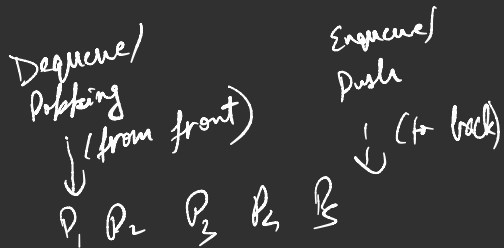 Dequeue/
Popping
(from front)
Enqueue/
Push
(to back)
P₁ P₂ P₃ P₄ P₅